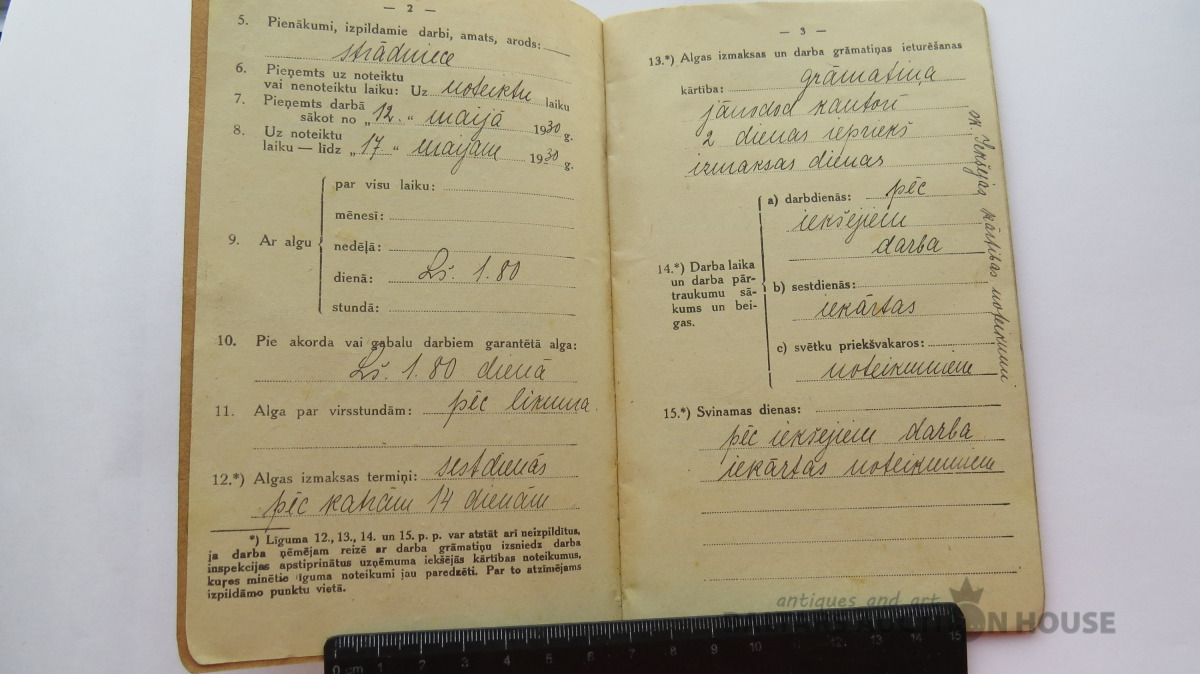 — 2 —
5. Pienākumi, izpildamie darbi, amats, arods:
strādniece
6. Pieņemts uz noteiktu
vai nenoteiktu laiku: Uz noteiktu laiku
7. Pieņemts darbā
sākot no „ 12. “ maijā 1930 g.
8. Uz noteiktu
laiku — līdz „ 17 “ maijam 1930 g.
9. Ar algu
par visu laiku:
mēnesī:
nedēļā:
dienā: Ls. 1.80
stundā:
10. Pie akorda vai gabalu darbiem garantētā alga:
Ls. 1.80 dienā
11. Alga par virsstundām: pēc likuma.
12.*) Algas izmaksas termiņi: sestdienās
pēc katrām 14 dienām
*) Līguma 12., 13., 14. un 15. p. p. var atstāt arī neizpildītus,
ja darba ņēmējam reizē ar darba grāmatiņu izsniedz darba
inspekcijas apstiprinātus uzņēmuma iekšējās kārtības noteikumus,
kuŗos minētie līguma noteikumi jau paredzēti. Par to atzīmējams
izpildāmo punktu vietā.
— 3 —
13.*) Algas izmaksas un darba grāmatiņas ieturēšanas
kārtība: grāmatiņa
jānodod kantorī
2 dienas iepriekš
izmaksas dienas
14.*) Darba laika
un darba pār-
traukumu sā-
kums un bei-
gas.
a) darbdienās: pēc
iekšējiem
darba
b) sestdienās:
iekārtas
c) svētku priekšvakaros:
noteikumiem
sk. Iekšējās kārtības noteikumi
15.*) Svinamas dienas:
pēc iekšējiem darba
iekārtas noteikumiem
antiques and art
ON HOUSE
0 cm 1 2 3 4 5 6 7 8 9 10 11 12 13 14 15